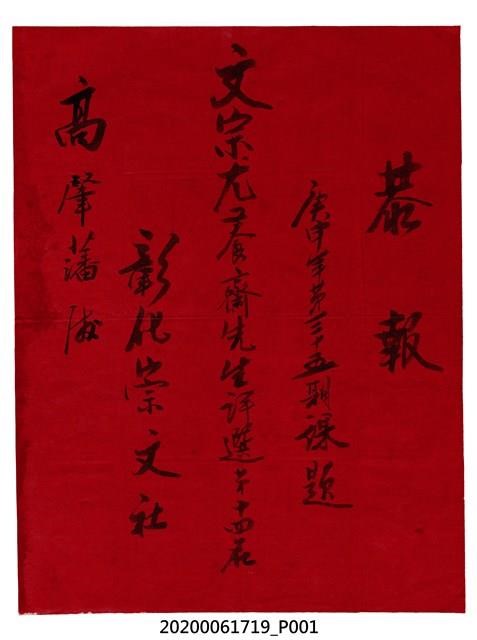 恭報
庚申年第三十五期課題
文宗尤養齋先生評選第十四名
彰化崇文社
高肇藩
20200061719_P001